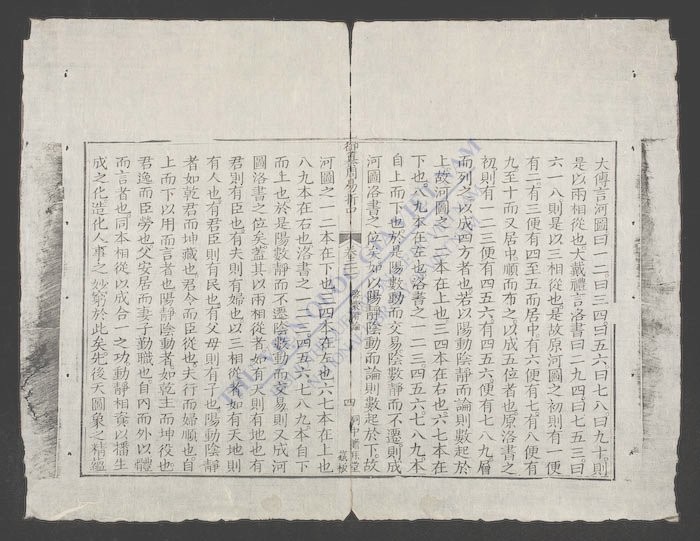 大傳言河圖曰一二曰三四曰五六曰七八曰九十則
是以兩相從也大戴禮言洛書曰二九四曰七五三曰
六一八則是以三相從也是故原河圖之初則有一便
有二有三便有四至五而居中有六便有七有八便有
九至十而又居中順而布之以成五位者也原洛書之
初則有一二三便有四五六有四五六便有七八九層
而列之以成四方者也若以陽動陰靜而論則數起於
上故河圖之一二本在上也三四本在右也六七本在
下也八九本在左也洛書之一二三四五六七八九本
自上而下也於是陽數動而交易陰數靜而不遷則成
河圖洛書之位矣如以陽靜陰動而論則數起於下故
御纂周易折中
卷二十一
四
河圖之一二本在下也三四本在左也六七本在上也
八九本在右也洛書之一二三四五六七八九本自下
而上也於是陽數靜而不遷陰數動而交易則又成河
圖洛書之位矣蓋其以兩相從者如有天則有地也有
君則有臣也有夫則有婦也以三相從者如有天地則
有人也有君臣則有民也有父母則有子也陽動陰靜
者如乾君而坤藏也君令而臣從也夫行而婦順也自
上而下以用而言者也陽靜陰動者如乾主而坤役也
君逸而臣勞也父安居而妻子勤職也自內而外以體
而言者也同本相從以成合一之功動靜相養以播生
成之化造化人事之妙窮於此矣先後天圖象之精蘊